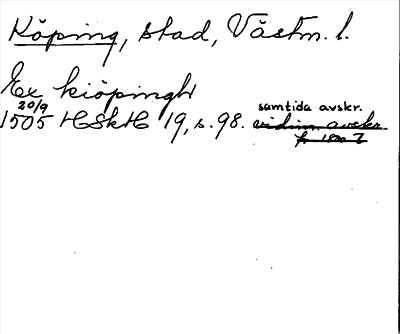 Köping, stad, Västm. l.
Ex kiöpingh
20/9
1505 HSkH 19, s. 98. samtida avskr.
vidim. avskr.